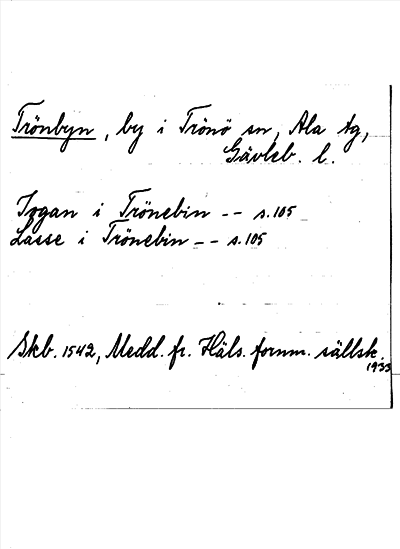 Trönbyn, by i Trönö sn, Ala tg,
Gävleb. l.
Jogan i Trönebin -- s. 105
Lasse i Trönebin -- s. 105
Skb. 1542, Medd. fr. Häls. fornm. sällsk.
1935